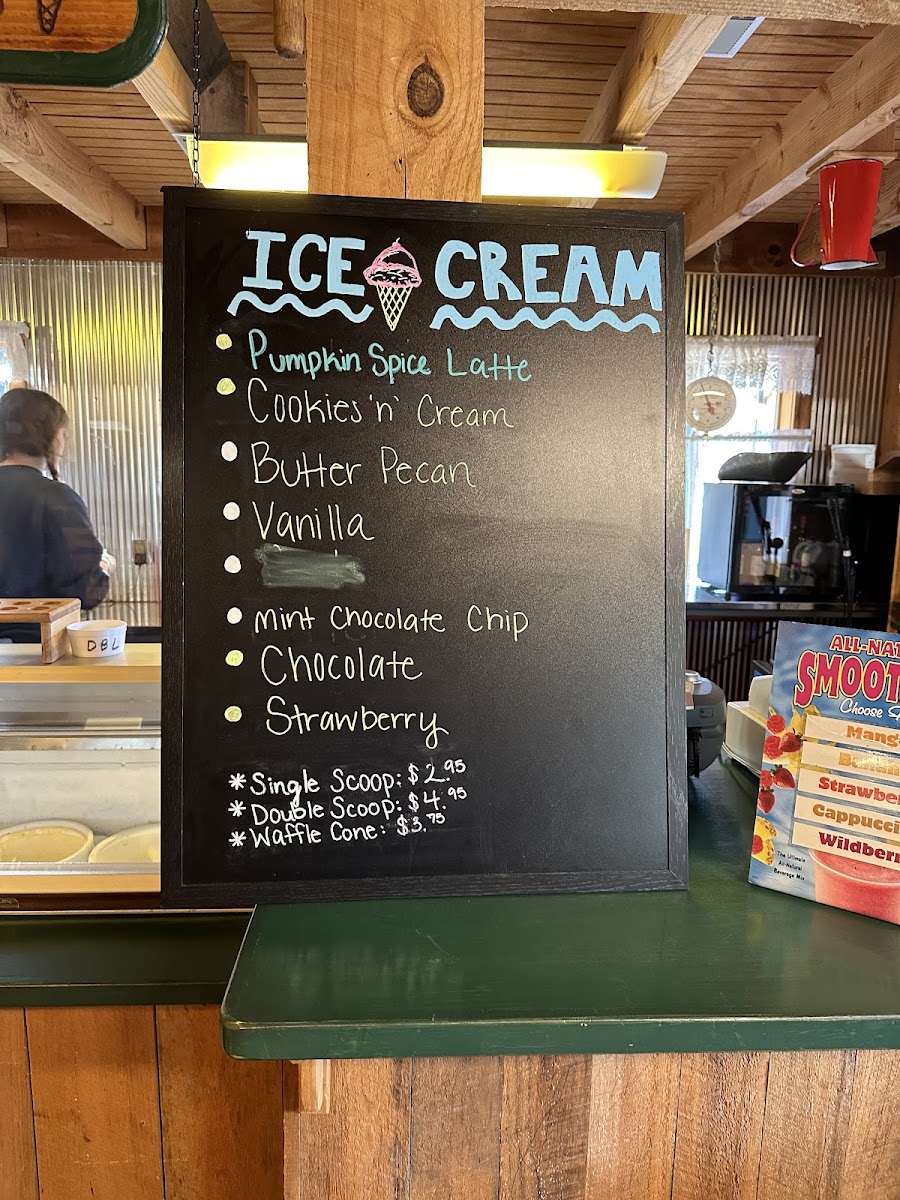 ICE CREAM
Pumpkin Spice Latte
Cookies 'n' Cream
Butter Pecan
Vanilla
Mint Chocolate Chip
Chocolate
Strawberry
*Single Scoop: $2.95
*Double Scoop: $4.95
*Waffle Cone: $3.75
DBL
ALL-NAT
SMOOT
Choose
Mang
Banan
Strawbe
Cappucci
Wildberr
The Ultimate
All-Natural
Beverage Mix